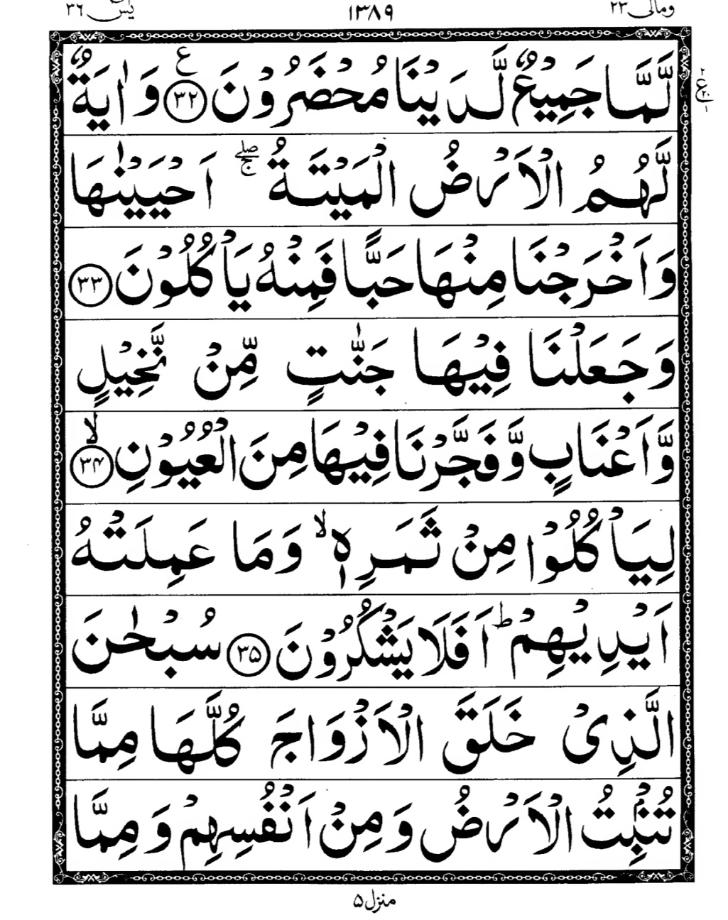 ومالی ٢٣ ١٣٨٩ یٰسٓ ٣٦
لَّمَّا جَمِیْعٌ لَّدَیْنَا مُحْضَرُوْنَ ﴿۳۲﴾ ع وَاٰیَةٌ
لَّهُمُ الْاَرْضُ الْمَیْتَةُ ۖۚ اَحْیَیْنٰهَا
وَاَخْرَجْنَا مِنْهَا حَبًّا فَمِنْهُ یَاْكُلُوْنَ ﴿۳۳﴾
وَجَعَلْنَا فِیْهَا جَنّٰتٍ مِّنْ نَّخِیْلٍ
وَّاَعْنَابٍ وَّفَجَّرْنَا فِیْهَا مِنَ الْعُیُوْنِ ﴿۳۴﴾ لا
لِیَاْكُلُوْا مِنْ ثَمَرِهٖ ۙ وَمَا عَمِلَتْهُ
اَیْدِیْهِمْ ؕ اَفَلَا یَشْكُرُوْنَ ﴿۳۵﴾ سُبْحٰنَ
الَّذِیْ خَلَقَ الْاَزْوَاجَ كُلَّهَا مِمَّا
تُنْۢبِتُ الْاَرْضُ وَمِنْ اَنْفُسِهِمْ وَمِمَّا
منزل ۵